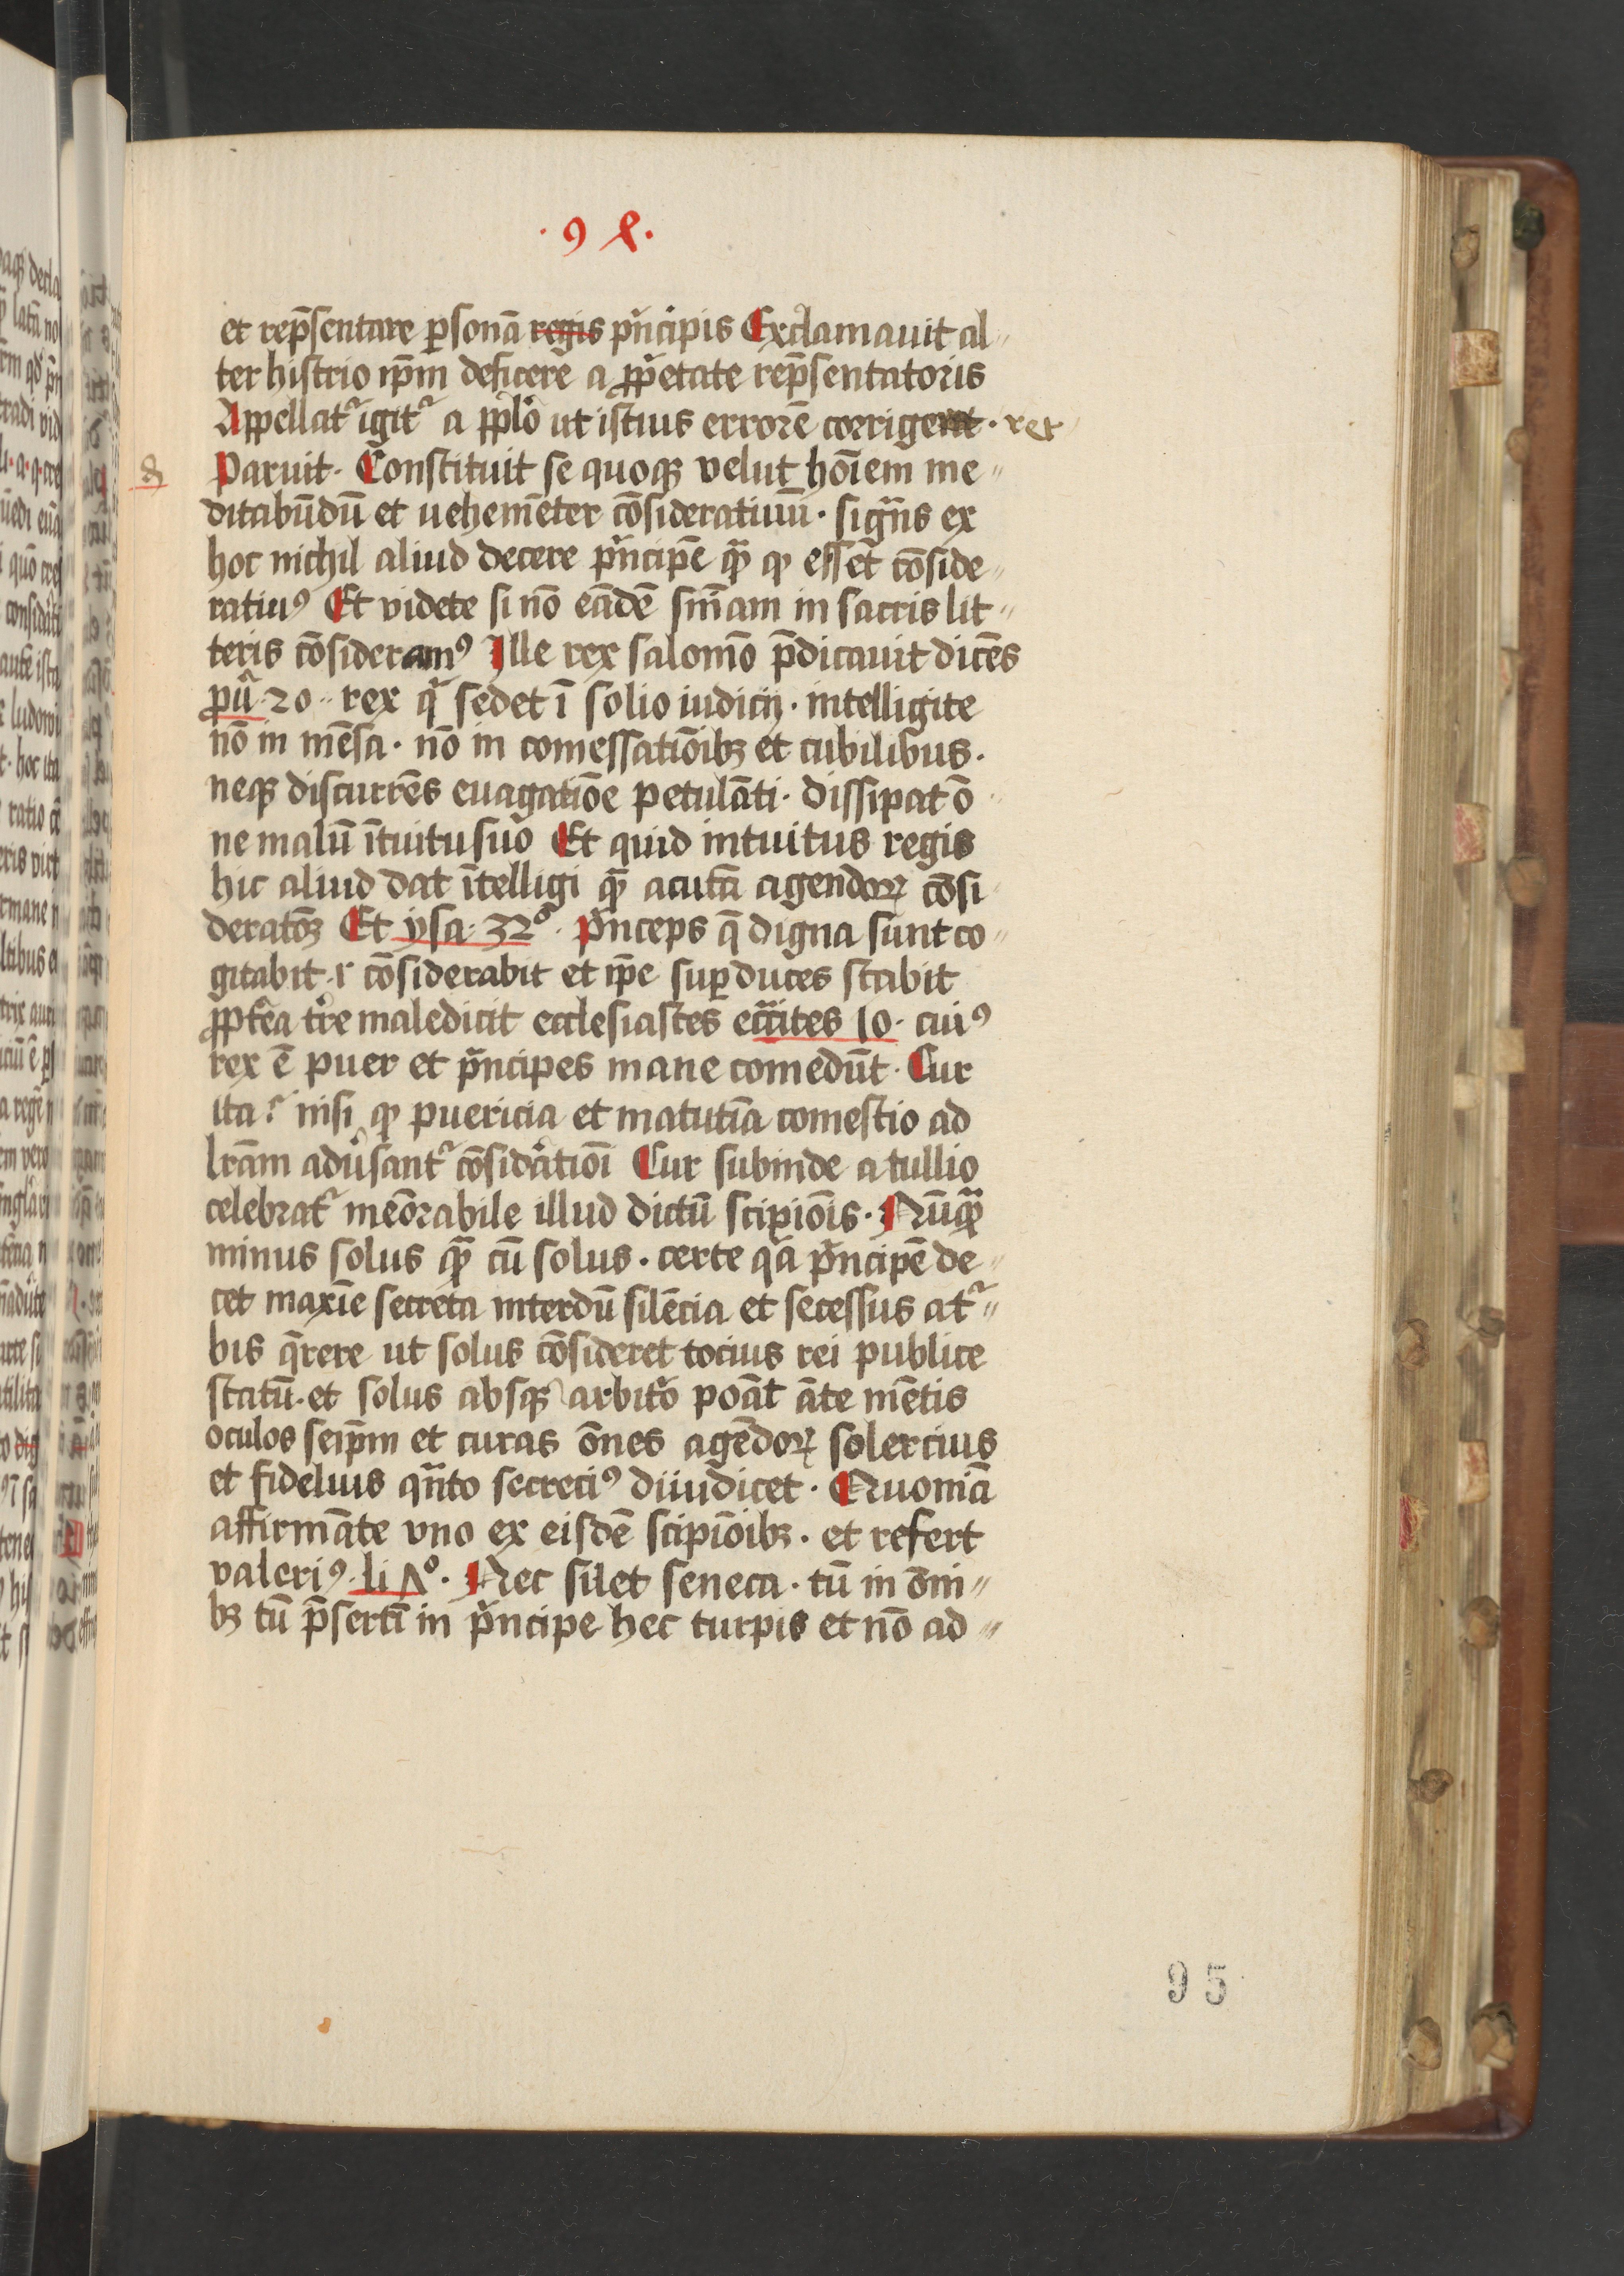 · 9 8 ·
et rep̄sentare ꝑsonā regis pͥncipis Exclamauit al〃
ter histrio ip̄m deficere a ꝓp̄etate rep̄sentatoris
Appellatᷣ igitᷣ a pp̄lo ut istius errorē corrigeret · ret
Paruit · Constituit se quoqꝫ velut hoīem me〃
ditabūdū et uehemēter cōsideratiuū · sigᷓns ex
hoc nichil aliud decere pͥncipē qᷓꝫ ꝙ esset cōside〃
ratiuꝰ Et videte si nō eādē smᷓam in sacris lit〃
teris cōsideramꝰ Ille rex salomō p̄dicauit dicēs
ꝓuͥ · 20 · rex qͥ sedet ī solio iudicij · intelligite
nō in mēsa · nō in comessatiōibꝫ et cubilibus ·
neqꝫ discurrēs euagatiōe petulāti · dissipat ō
ne malū ītuitu suo Et quid intuitus regis
hic aliud dat ītelligi qᷓꝫ acutā agendoꝝ cōsi
deratōꝫ Et ysa · 32º · Pͥnceps q̄ digna sunt co〃
gitabit · ⁊ cōsiderabit et ip̄e suꝑ duces stabit
ꝓpterea tr̄e maledicit ecclesiastes ecc̄ites 10 · cuiꝰ
rex ē puer et pͥncipes mane comedūt · Cur
ita ? nisi ꝙ puericia et matutīa comestio ad
lr̄am adūsantᷣ cōsidᷓationi Cur subinde a tullio
celebratᷣ memōrabile illud dictū scipiōis · Nūqᷓꝫ
minus solus qᷓꝫ cū solus · certe qᷓa pͥncipē de〃
cet maxīe secreta interdū silēcia et secessus atᷣ〃
bis q̄rere ut solus cōsideret tocius rei publice
statū · et solus absqꝫ arbitᷓo poāt āte mētis
oculos seip̄m et curas ōnes agēdoꝝ solercius
et fidelius qᷓnto secreciꝰ diiudicet · Quoniā
affirmāte vno ex eisdē scipiōibꝫ · et refert
valeriꝰ · li 7º · Nec silet seneca · tū in ōni〃
bꝫ tū p̄sertī in pͥncipe hec turpis et nō ad〃
95